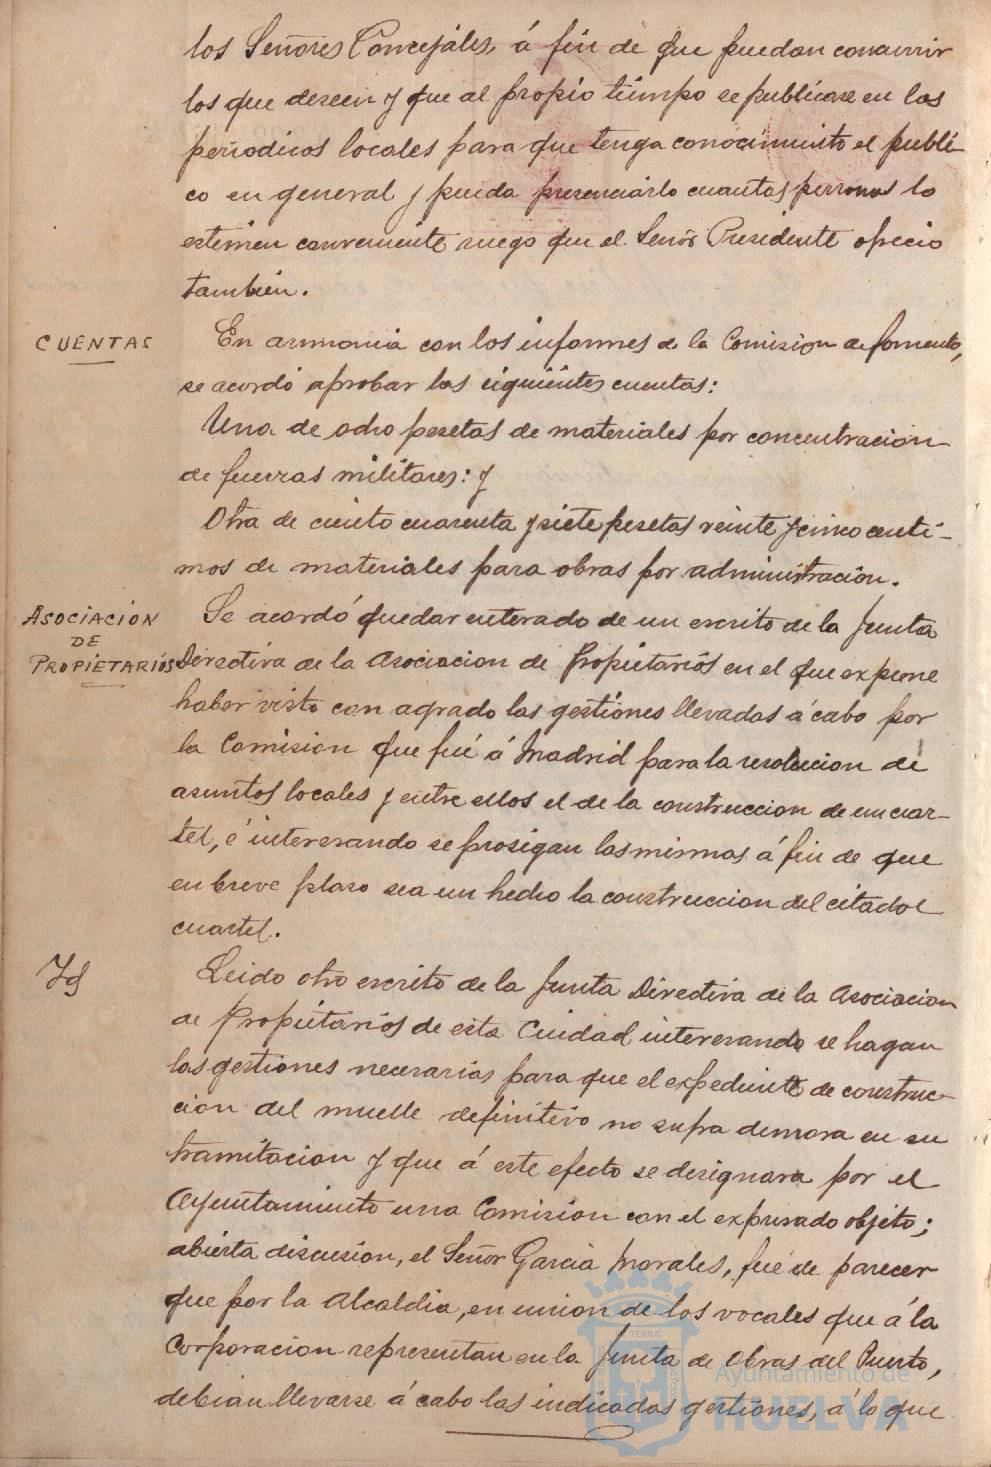 los Señores Concejáles, á fin de que puedan concurrir
los que deseen y que al propio tiempo se publicase en los
periodicos locales para que tenga conocimiento el publi-
co en general y pueda presenciarlo cuantas personas lo
estimen conveniente ruego que el Señor Presidente ofrecio
tambien.
CUENTAS
En armonia con los informes de la Comision de fomento,
se acordó aprobar las siguientes cuentas:
Una de ocho pesetas de materiales por concentracion
de fuerzas militares: y
Otra de ciento cuarenta y siete pesetas veinte y cinco centi-
mos de materiales para obras por administracion.
ASOCIACION
DE
PROPIETARIOS
Se acordó quedar enterado de un escrito de la Junta
Directiva de la Asociacion de Propietarios en el que expone
haber visto con agrado las gestiones llevadas á cabo por
la Comision que fué á Madrid para la resolucion de
asuntos locales y entre ellos el de la construccion de un cuar-
tel, é interesando se prosigan las mismas á fin de que
en breve plazo sea un hecho la construccion del citado
cuartel.
Id
Leido otro escrito de la Junta Directiva de la Asociacion
de Propietarios de esta Ciudad interesando se hagan
las gestiones necesarias para que el expediente de construc-
cion del muelle definitivo no sufra demora en su
tramitacion y que á este efecto se designara por el
Ayuntamiento una Comision con el expresado objeto;
abierta discusion, el Señor Garcia Morales, fué de parecer
que por la Alcaldia, en union de los vocales que á la
Corporacion representan en la Junta de Obras del Puerto,
debian llevarse á cabo las indicadas gestiones, á lo que
Ayuntamiento de
HUELVA